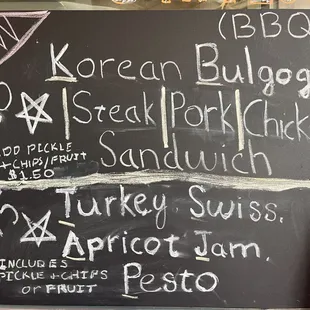 (BBQ
Korean Bulgog
Steak|Pork|Chick
Sandwich
ADD PICKLE
+ CHIPS/FRUIT
$1.50
Turkey, Swiss,
Apricot Jam,
Pesto
INCLUDES
PICKLE + CHIPS
or FRUIT